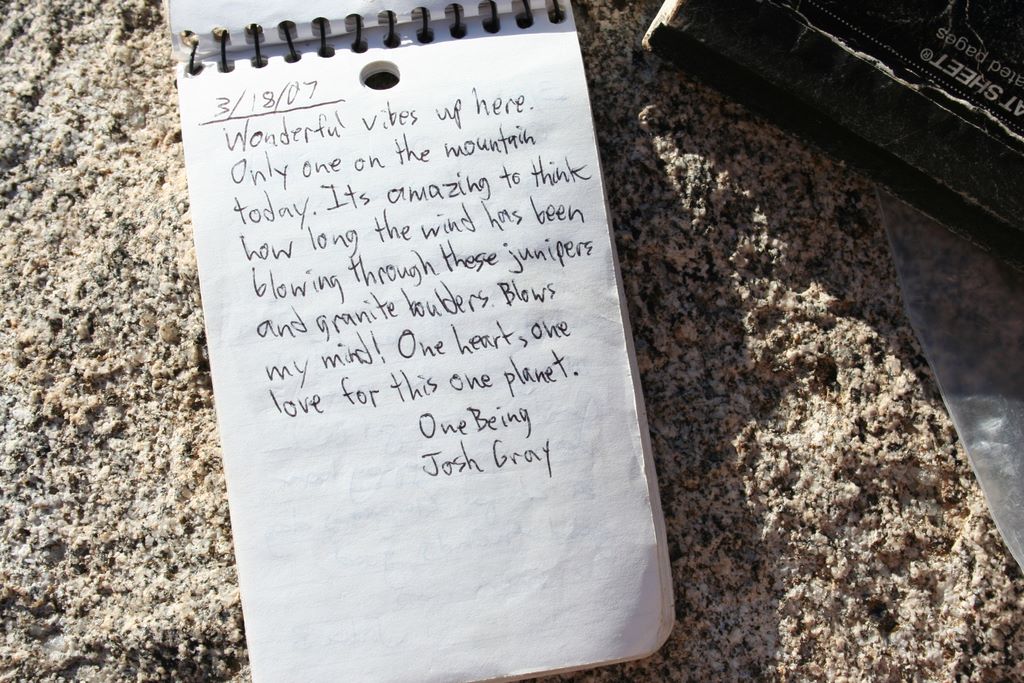 3/18/07
Wonderful vibes up here.
Only one on the mountain
today. Its amazing to think
how long the wind has been
blowing through these junipers
and granite boulders. Blows
my mind! One heart, one
love for this one planet.
One Being
Josh Gray
AT SHEET®
ated pages